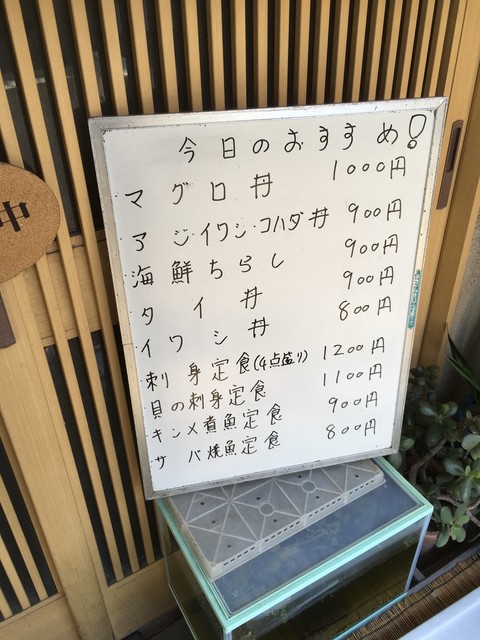 今日のおすすめ!
マグロ丼 1000円
アジ・イワシ・コハダ丼 900円
海鮮ちらし 900円
タイ丼 900円
イワシ丼 800円
刺身定食(4点盛り) 1200円
貝の刺身定食 1100円
キンメ煮魚定食 900円
サバ焼魚定食 800円
中